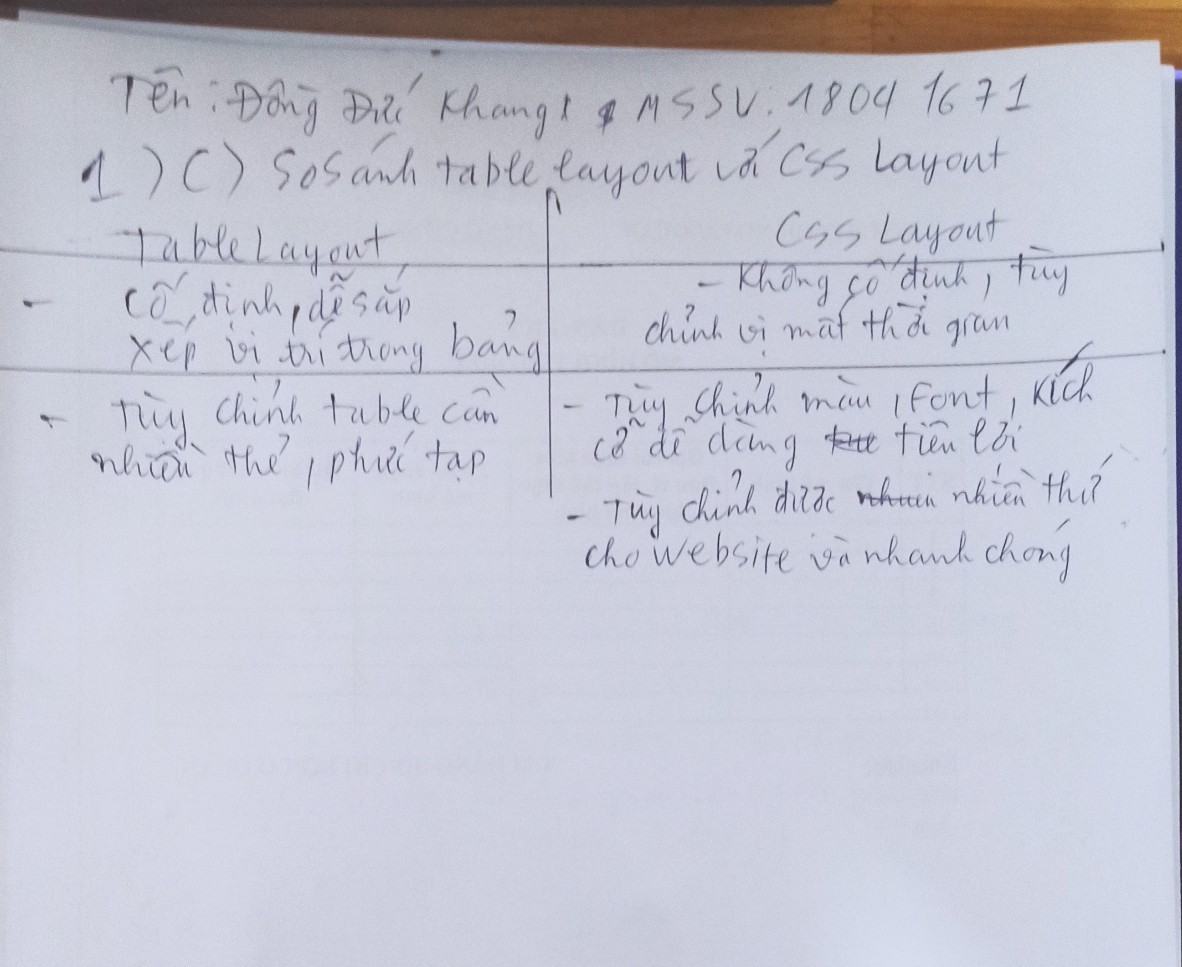 Tên: Đồng Đức Khang MSSV: 18041671
1) C) So sánh table layout với CSS Layout
Table Layout
CSS Layout
- Cố định, dễ sắp
xếp vị trí trong bảng
- Không cố định, tùy
chỉnh vị mất thời gian
- Tùy chỉnh table cần
nhiều thẻ, phức tạp
- Tùy chỉnh màu, Font, kích
cỡ dễ dàng tiện lợi
- Tùy chỉnh được nhiều thứ
cho website và nhanh chóng